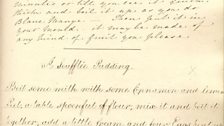 thick and boil it as as you do
Blanc Mange — Then put it in
your mould. it may be made of
any kind of fruit you please!
A Soufflé Pudding.
Boil some milk with some Cinnamon and lemon
Peel, a table spoonful of flour, mix it and boil it
together, add a little cream and four Eggs